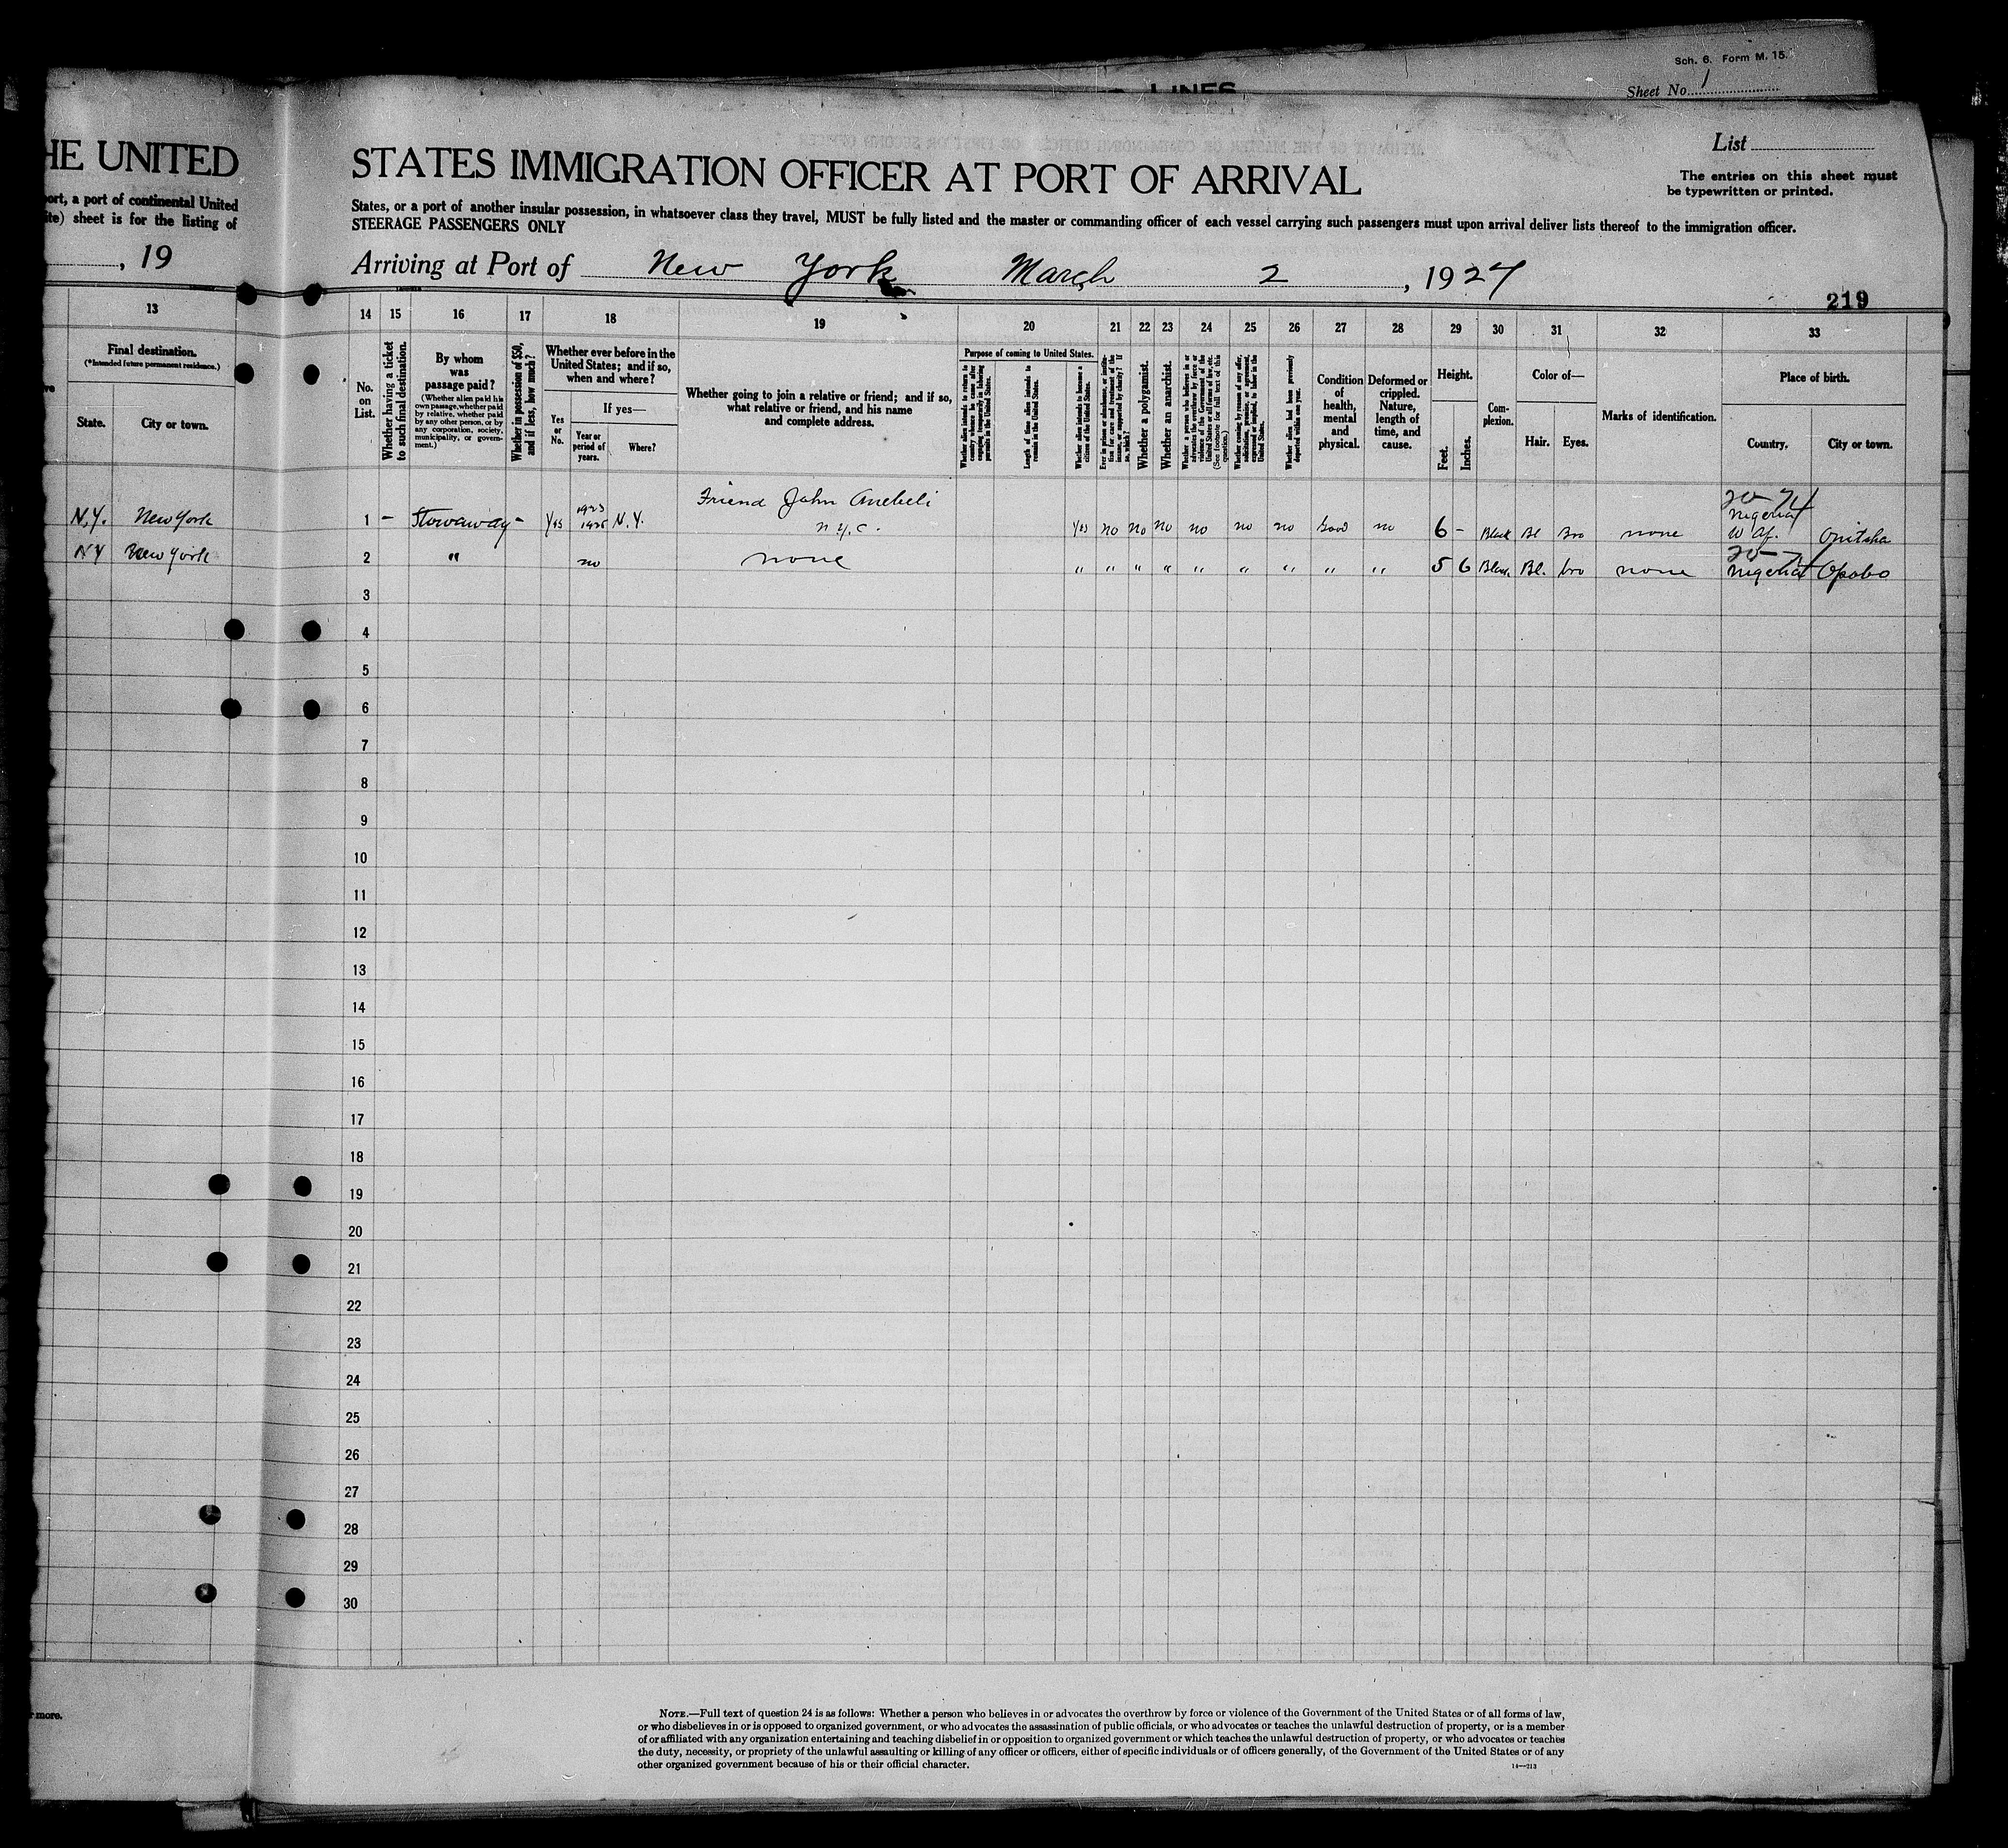 Sch. 6. Form M. 15.
Sheet No. 1
LINES
HE UNITED
STATES IMMIGRATION OFFICER AT PORT OF ARRIVAL
List
The entries on this sheet must
be typewritten or printed.
ort, a port of continental United
ite) sheet is for the listing of
States, or a port of another insular possession, in whatsoever class they travel, MUST be fully listed and the master or commanding officer of each vessel carrying such passengers must upon arrival deliver lists thereof to the immigration officer.
STEERAGE PASSENGERS ONLY
, 19
Arriving at Port of New York March 2, 1927
219
13 14 15 16 17 18 19 20 21 22 23 24 25 26 27 28 29 30 31 32 33
Final destination.
(*Intended future permanent residence.)
State.
City or town.
No.
on
List.
Whether having a ticket
to such final destination.
By whom
was
passage paid?
(Whether alien paid his
own passage, whether paid
by relative, whether paid
by any other person, or by
any corporation, society,
municipality, or govern-
ment.)
Whether in possession of $50,
and if less, how much?
Whether ever before in the
United States; and if so,
when and where?
Yes
or
No.
If yes—
Year or
period of
years.
Where?
Whether going to join a relative or friend; and if so,
what relative or friend, and his name
and complete address.
Purpose of coming to United States.
Whether alien intends to return to
country whence he came after
engaging temporarily in laboring
pursuits in the United States.
Length of time alien intends to
remain in the United States.
Whether alien intends to become a
citizen of the United States.
Ever in prison or almshouse, or institu-
tion for care and treatment of the
insane, or supported by charity? If
so, which?
Whether a polygamist.
Whether an anarchist.
Whether a person who believes in or
advocates the overthrow by force or
violence of the Government of the
United States or all forms of law, etc.
(See footnote for full text of this
question.)
Whether coming by reason of any offer,
solicitation, promise, or agreement,
expressed or implied, to labor in the
United States.
Whether alien had been previously
deported within one year.
Condition
of
health,
mental
and
physical.
Deformed or
crippled.
Nature,
length of
time, and
cause.
Height.
Feet.
Inches.
Com-
plexion.
Color of—
Hair.
Eyes.
Marks of identification.
Place of birth.
Country.
City or town.
N.Y. New York 1 - Stowaway - Yes 1923 N.Y. Friend John Anebeli
N.Y.C. Yes no no no no no no Good no 6 - Black Bl Bro none Nigeria W Af. Onitsha
NY New York 2 " no none " " " " " " " " " 5 6 Black Bl. bro none Nigeria Opobo
3
4
5
6
7
8
9
10
11
12
13
14
15
16
17
18
19
20
21
22
23
24
25
26
27
28
29
30
r more.
NOTE.—Full text of question 24 is as follows: Whether a person who believes in or advocates the overthrow by force or violence of the Government of the United States or of all forms of law,
or who disbelieves in or is opposed to organized government, or who advocates the assassination of public officials, or who advocates or teaches the unlawful destruction of property, or is a member
of or affiliated with any organization entertaining and teaching disbelief in or opposition to organized government or which teaches the unlawful destruction of property, or who advocates or teaches
the duty, necessity, or propriety of the unlawful assaulting or killing of any officer or officers, either of specific individuals or of officers generally, of the Government of the United States or of any
other organized government because of his or their official character.
14—213